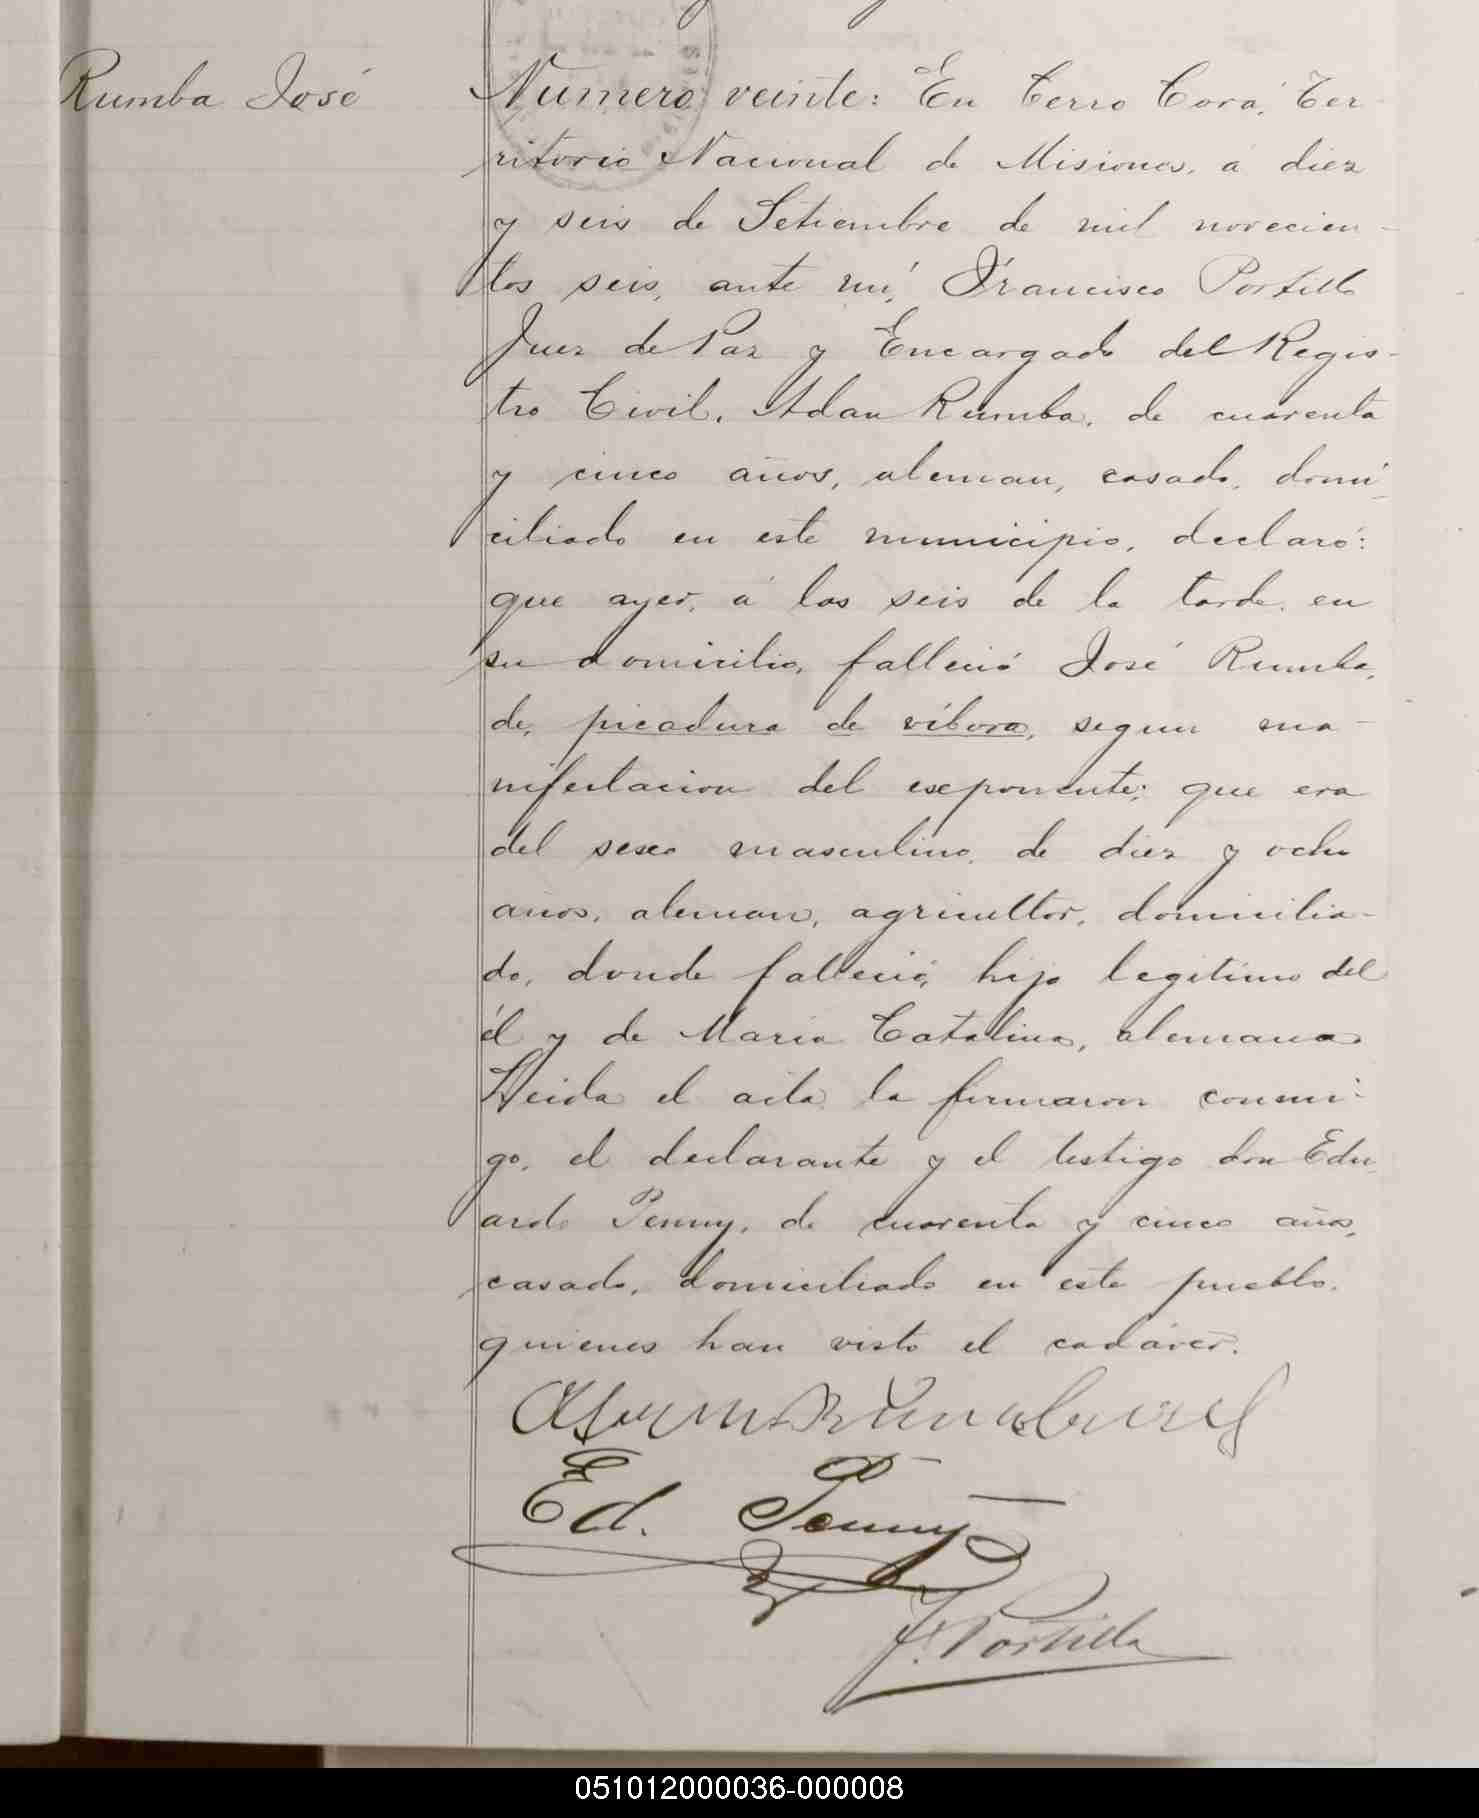 Rumba José
Numero veinte: En Cerro Corá, Ter-
ritorio Nacional de Misiones, á diez
y seis de Setiembre de mil novecien-
tos seis, ante mí, Francisco Portillo
Juez de Paz y Encargado del Regis-
tro Civil, Adan Rumba, de cuarenta
y cinco años, aleman, casado, domi-
ciliado en este municipio, declaró:
que ayer, á las seis de la tarde, en
su domicilio, falleció José Rumba,
de, picadura de víbora, segun ma-
nifestacion del exponente; que era
del sexo masculino, de diez y ocho
años, aleman, agricultor, domicilia-
do, donde falleció, hijo legitimo del
él y de María Catalina, alemana.
Leida el acta la firmaron conmi-
go, el declarante y el testigo don Edu-
ardo Penny, de cuarenta y cinco años,
casado, domiciliado en este pueblo,
quienes han visto el cadáver.
Ed. Penny
F. Portillo
051012000036-000008